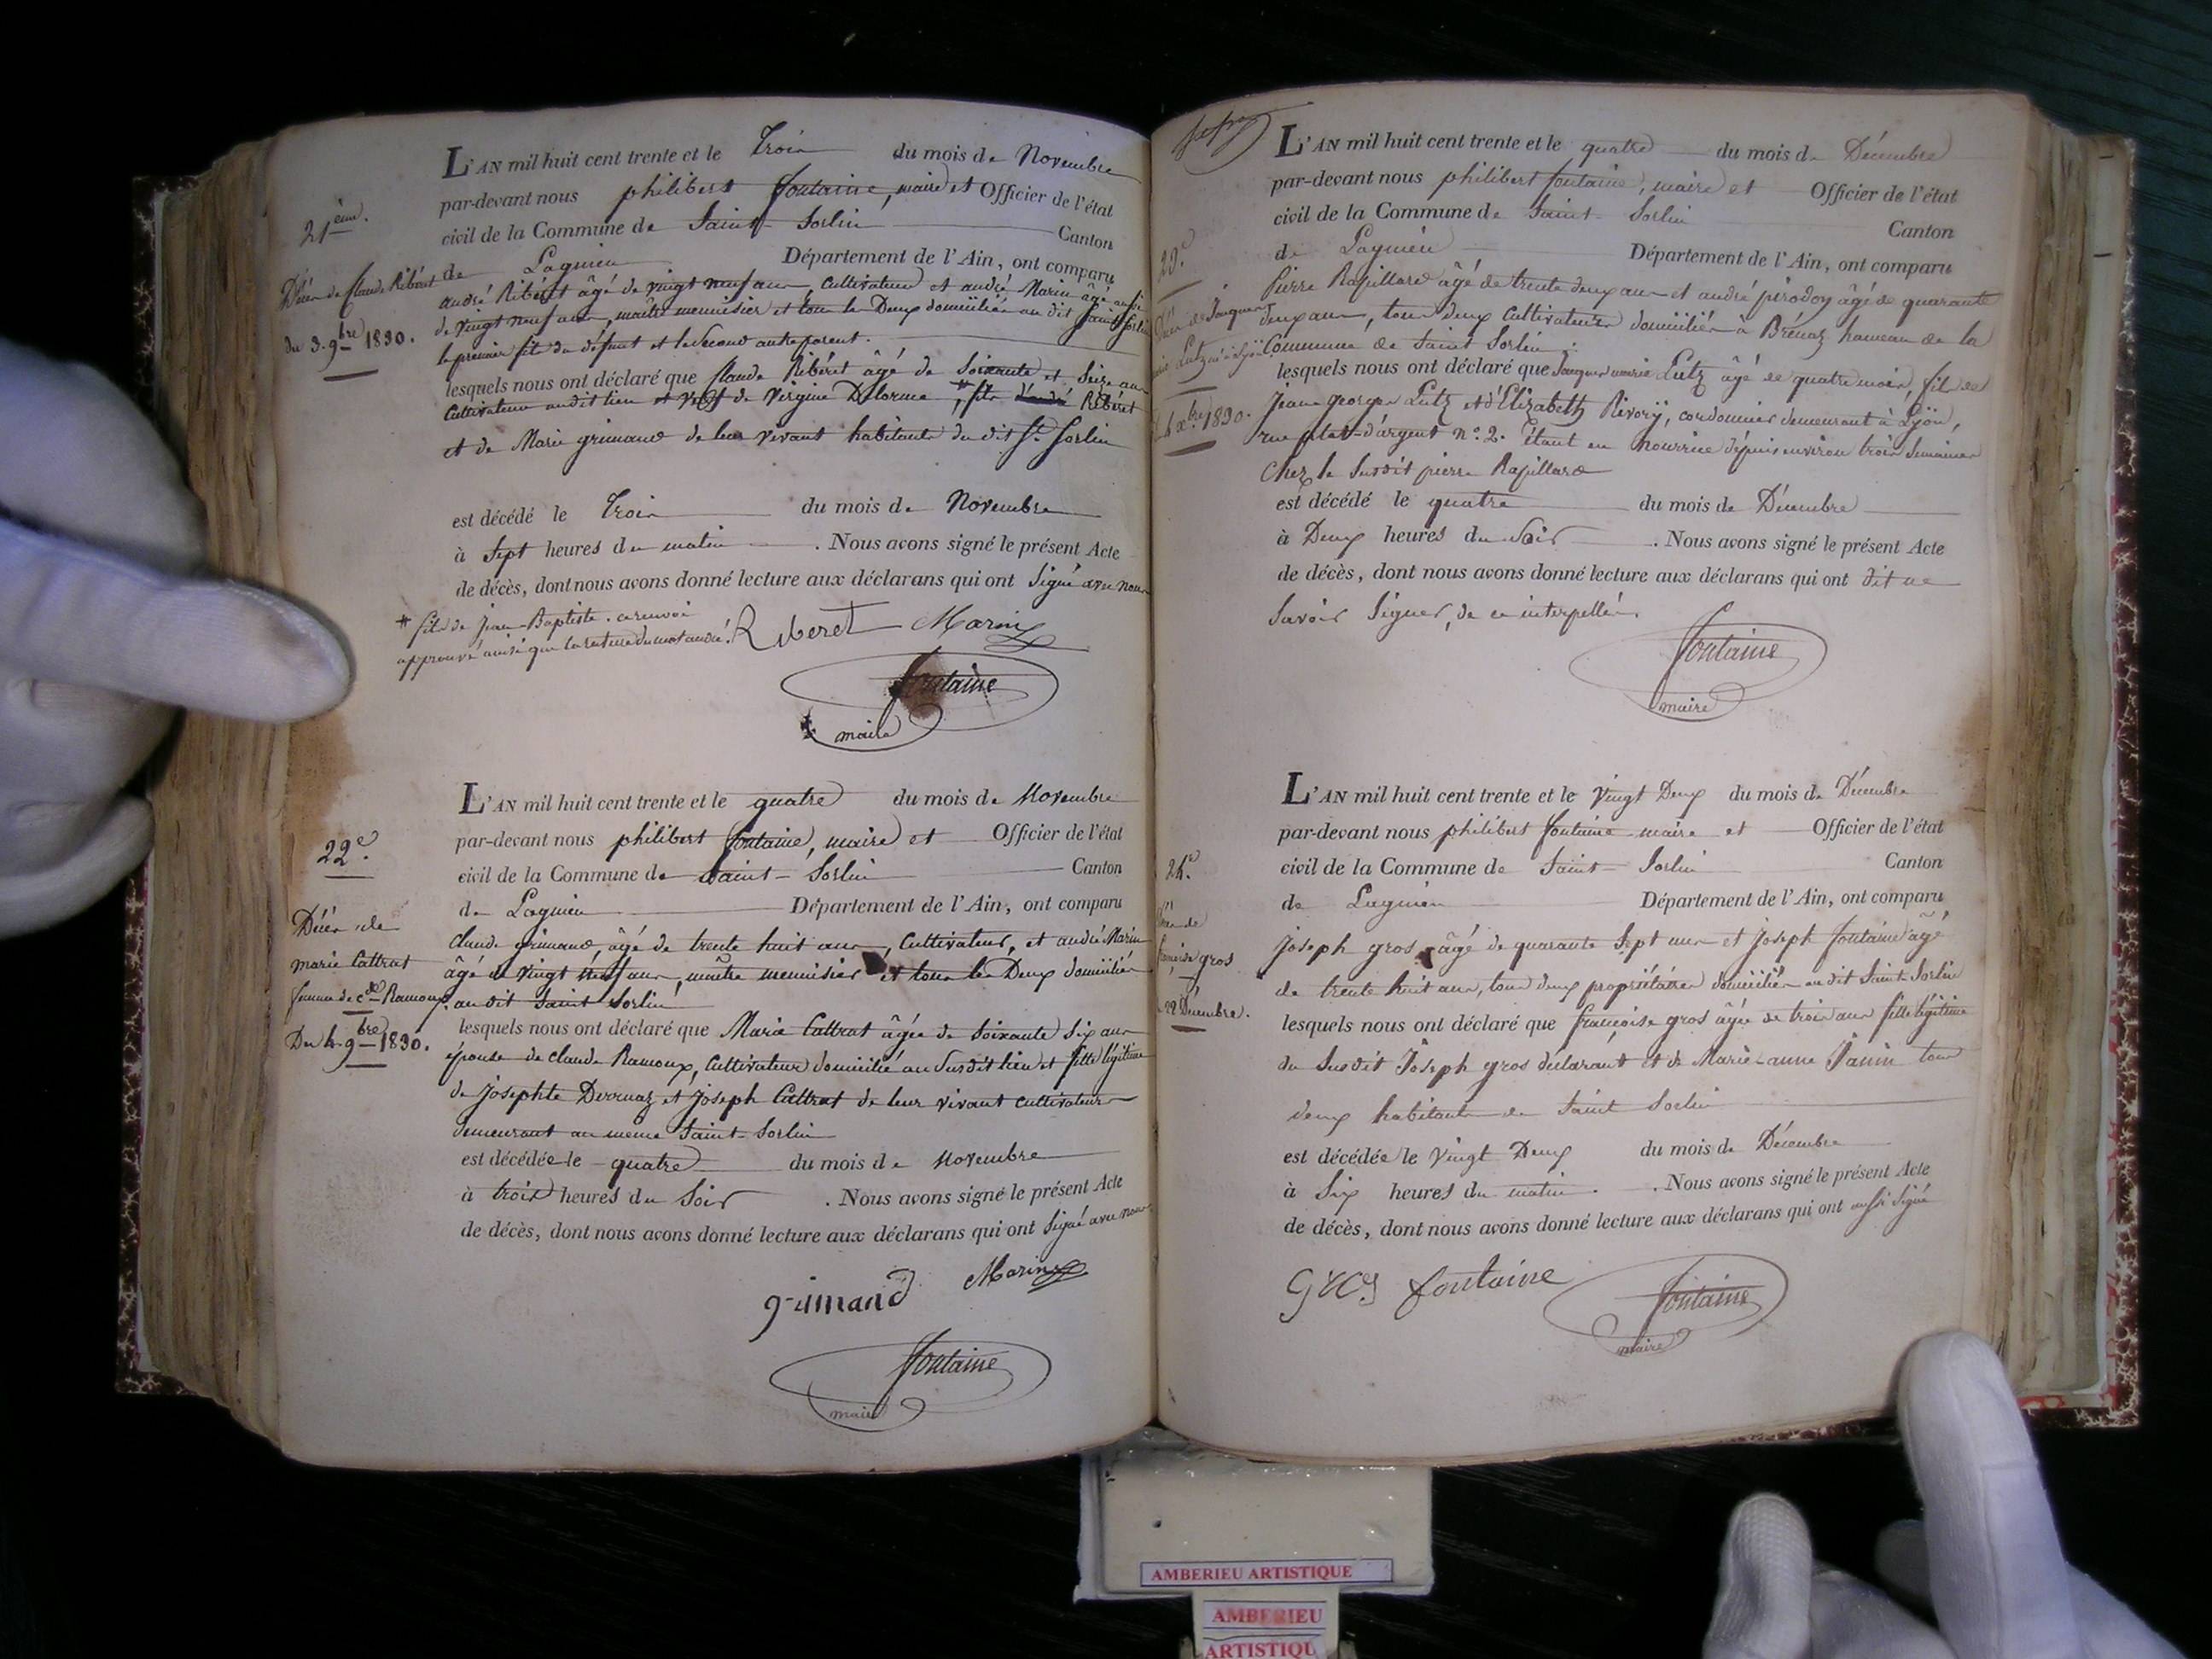 21ème.
Décès de Claude Ribéret
du 3. 9bre 1830.
L'AN mil huit cent trente et le Trois du mois de Novembre
par-devant nous philibert fontaine, maire et Officier de l'état
civil de la Commune de Saint-Sorlin Canton
de Lagnieu Département de l'Ain, ont comparu
andré Ribéret âgé de vingt neuf ans, Cultivateur et andré Marin âgé aussi
de vingt neuf ans, maître menuisier et tous les Deux domiciliés au dit Saint Sorlin
le premier fils du défunt et le Second autre parent.
lesquels nous ont déclaré que Claude Ribéret âgé de Soixante et Seize ans
Cultivateur audit lieu et veuf de Virginie Delorme *, fils d'andré Ribéret
et de Marie grimaud de leur vivant habitants du dit St. Sorlin
est décédé le Trois du mois de Novembre
à Sept heures du matin . Nous avons signé le présent Acte
de décès, dont nous avons donné lecture aux déclarans qui ont Signé avec nous
* fils de Jean-Baptiste. ce renvoi
approuvé ainsi que la rature du mot andré.
Riberet Marin
fontaine
maire
22e.
Décès de
marie Cattrat
femme de Cde Ramoux.
Du 4. 9bre 1830.
L'AN mil huit cent trente et le quatre du mois de Novembre
par-devant nous philibert fontaine, maire et Officier de l'état
civil de la Commune de Saint-Sorlin Canton
de Lagnieu Département de l'Ain, ont comparu
Claude grimaud, âgé de trente huit ans, Cultivateur, et andré Marin
âgé de vingt neuf ans, maître menuisier et tous les Deux domiciliés
au dit Saint Sorlin
lesquels nous ont déclaré que Marie Cattrat âgée de Soixante Six ans
épouse de Claude Ramoux, Cultivateur domicilié au Susdit lieu et fille légitime
de Josephte et Joseph Cattrat de leur vivant cultivateurs
demeurant au même Saint-Sorlin
est décédée le quatre du mois de Novembre
à trois heures du Soir . Nous avons signé le présent Acte
de décès, dont nous avons donné lecture aux déclarans qui ont Signé avec nous
grimand Marin
fontaine
maire
23.e
Décès de Jacques
marie Lutz né à Lyon
4 Xbre 1830.
L'AN mil huit cent trente et le quatre du mois de Décembre
par-devant nous philibert fontaine, maire et Officier de l'état
civil de la Commune de Saint-Sorlin Canton
de Lagnieu Département de l'Ain, ont comparu
Pierre Rapillard âgé de trente deux ans et andré pirodoy âgé de quarante
deux ans, tous deux Cultivateurs domiciliés à Brénaz hameau de la
Commune de Saint Sorlin.
lesquels nous ont déclaré que Jacques marie Lutz âgé de quatre mois, fils de
Jean georges Lutz et d'Elizabeth Rivory, cordonnier demeurant à Lyon,
rue plat-d'argent n°. 2. étant en nourrice dépuis environ trois Semaines
Chez le Susdit pierre Rapillard
est décédé le quatre du mois de Décembre
à Deux heures du Soir . Nous avons signé le présent Acte
de décès, dont nous avons donné lecture aux déclarans qui ont dit ne
Savoir Signer, de ce interpellés.
fontaine
maire
24e.
Décès de
françoise gros
22 Décembre.
L'AN mil huit cent trente et le Vingt Deux du mois de Décembre
par-devant nous philibert fontaine maire et Officier de l'état
civil de la Commune de Saint-Sorlin Canton
de Lagnieu Département de l'Ain, ont comparu
Joseph gros, âgé de quarante Sept ans et Joseph fontaine âgé
de trente huit ans, tous deux propriétaires domiciliés au dit Saint-Sorlin
lesquels nous ont déclaré que françoise gros âgée de trois ans fille légitime
du Susdit Joseph gros déclarant et de Marie-anne Janin tous
deux habitants de Saint Sorlin
est décédée le Vingt Deux du mois de Décembre
à Six heures du matin . Nous avons signé le présent Acte
de décès, dont nous avons donné lecture aux déclarans qui ont aussi Signé
Gros fontaine
fontaine
maire
AMBERIEU ARTISTIQUE
AMBERIEU
ARTISTIQU